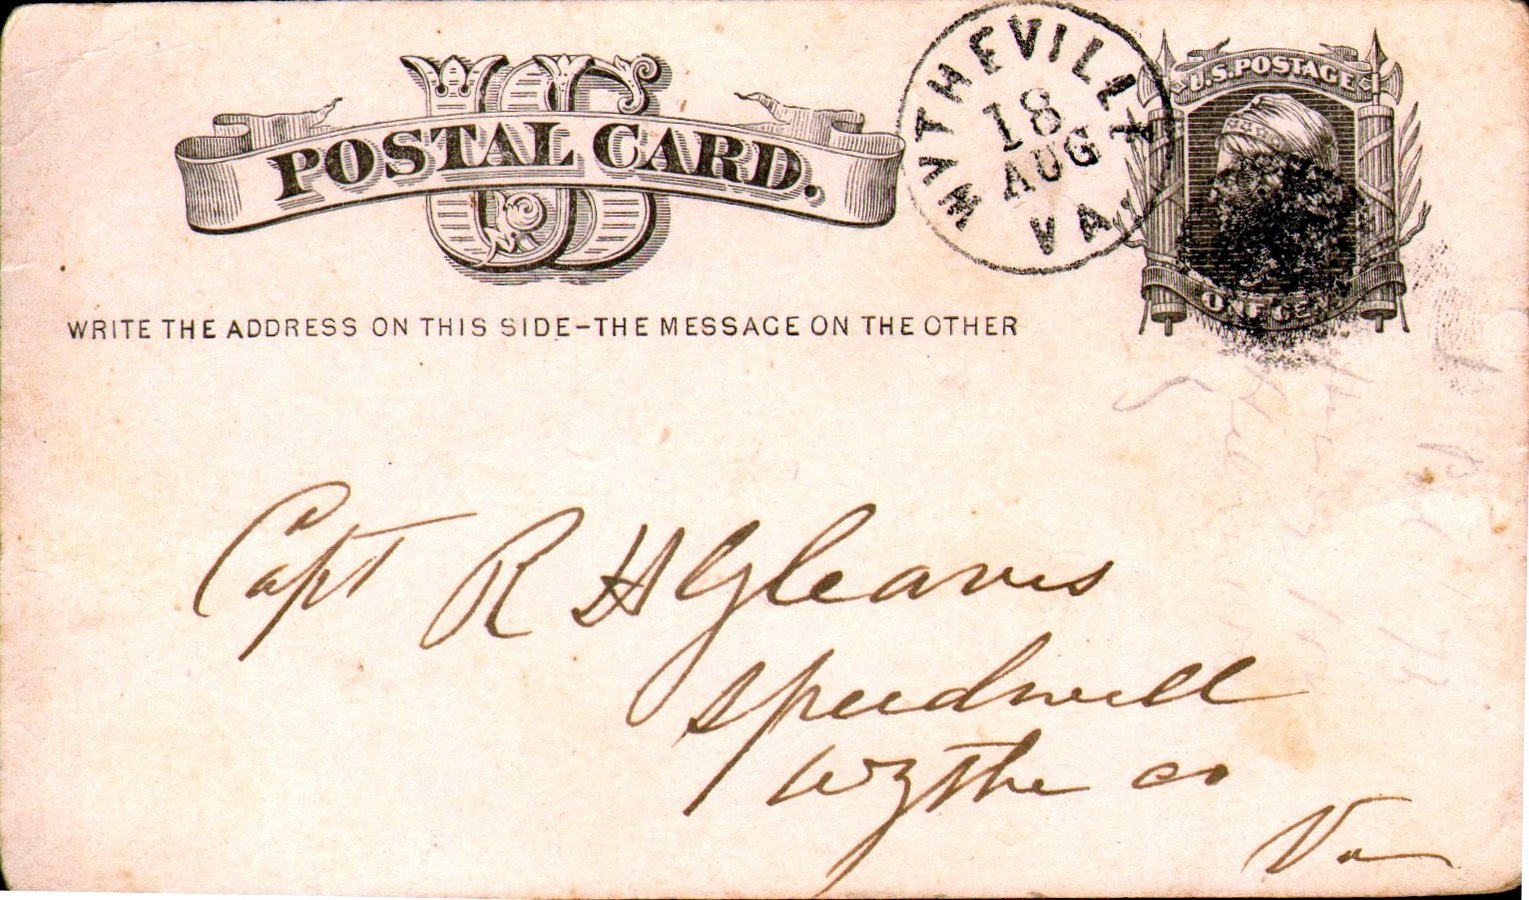 US
POSTAL CARD.
WYTHEVILLE
18
AUG
VA
U.S. POSTAGE
ONE CENT
WRITE THE ADDRESS ON THIS SIDE-THE MESSAGE ON THE OTHER
Capt R H Gleaves
Speedwell
Wythe Co
Va